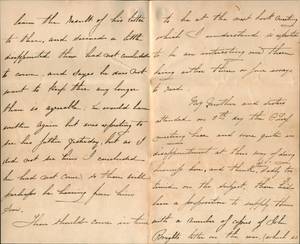 learn the result of his letter
to them, and seemed a little
disappointed they had not concluded
to come, and says he does not
want to keep them any longer
than is agreeable. he would have
written again but was expecting to
see his father yesterday, but as I
did not see him I concluded
he had not come so thou will
perhaps be hearing from him
soon.
Thou should come in time
to be at the next book meeting
which I understand is expected
to be an interesting one there
being either three or four essays
to read.
My brother and sister
attended on 5th day the
meeting here and were quite in
disappointment at there
being
herself here, and
found on the subject, there had
been a proposition to supply them
with a number of copies of John
Bright's letter on the war (which